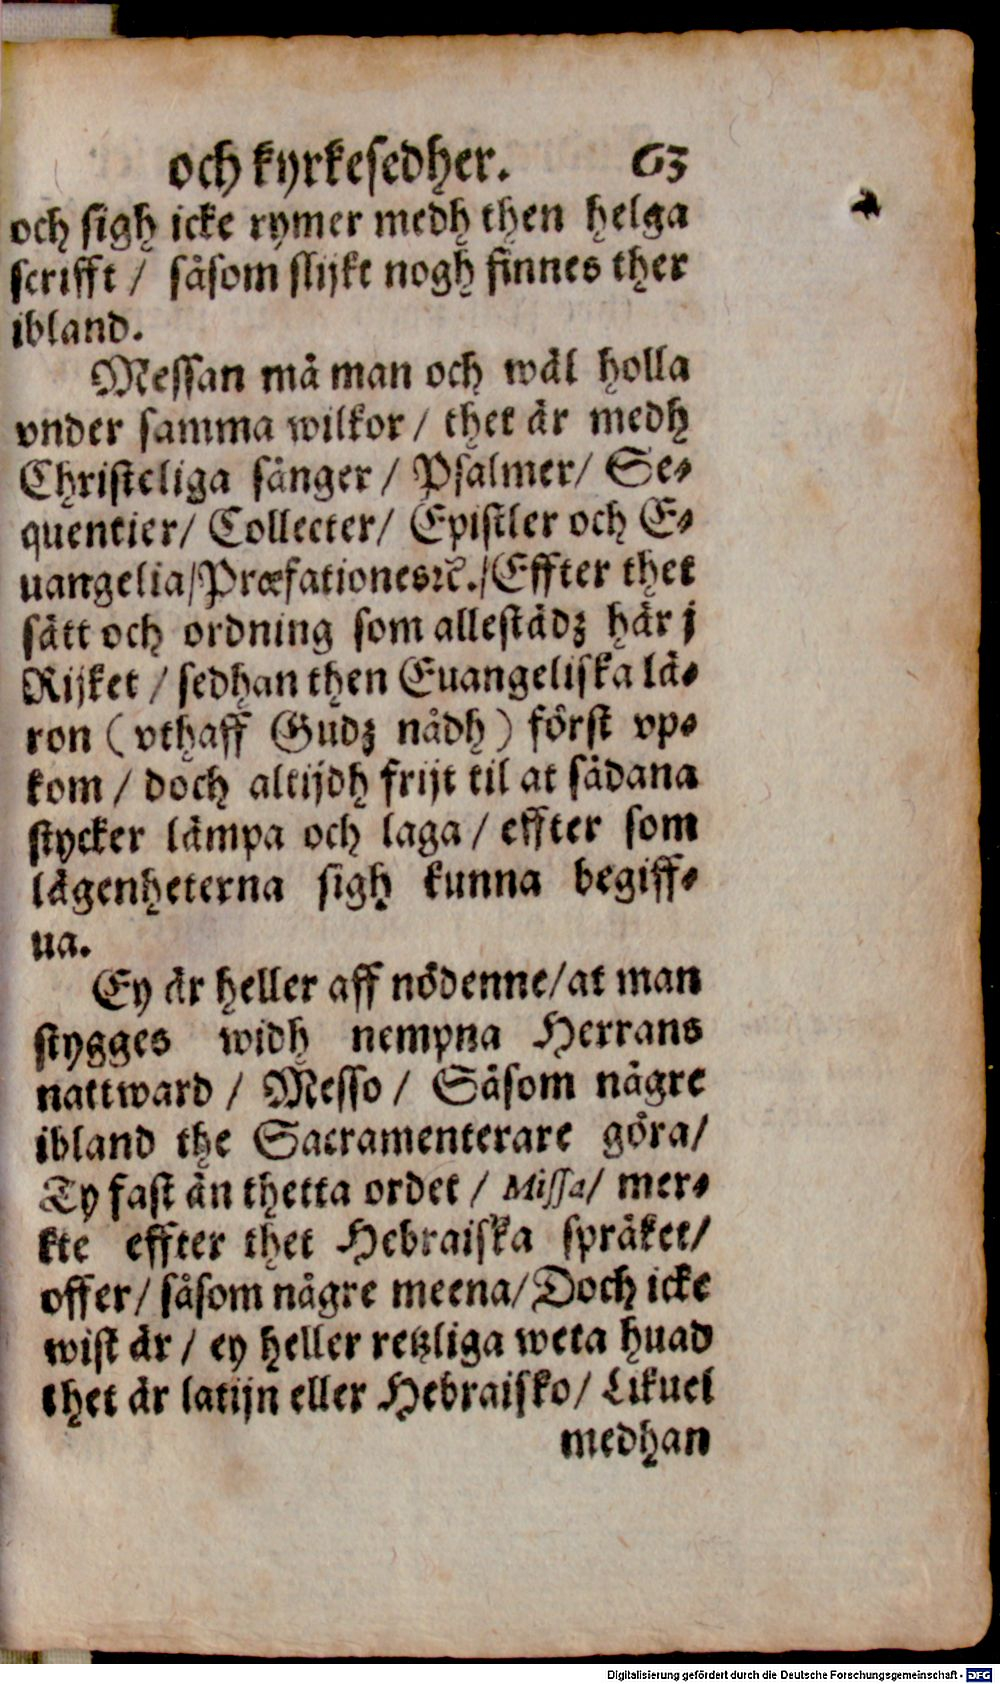 och kyrkesedher. 63
och sigh icke rymer medh then helga
scrifft / såsom slijkt nogh finnes ther
ibland.
Messan må man och wäl holla
vnder samma wilkor / thet är medh
Christeliga sånger / Psalmer / Se⸗
quentier / Collecter / Epistler och E⸗
uangelia / Præfationes ꝛc. / Effter thet
sätt och ordning som allestädz här j
Rijket / sedhan then Euangeliska lä⸗
ron ( vthaff Gudz nådh ) först vp⸗
kom / doch altijdh frijt til at sådana
stycker lämpa och laga / effter som
lägenheterna sigh kunna begiff⸗
ua.
Ey är heller aff nödenne / at man
stygges widh nempna Herrans
nattward / Messo / Såsom någre
ibland the Sacramenterare göra /
Ty fast än thetta ordet / Missa / mer⸗
kte effter thet Hebraiska språket /
offer / såsom någre meena / Doch icke
wist är / ey heller retzliga weta huad
thet är latijn eller Hebraisko / Likuel
medhan
Digitalisierung gefördert durch die Deutsche Forschungsgemeinschaft - DFG